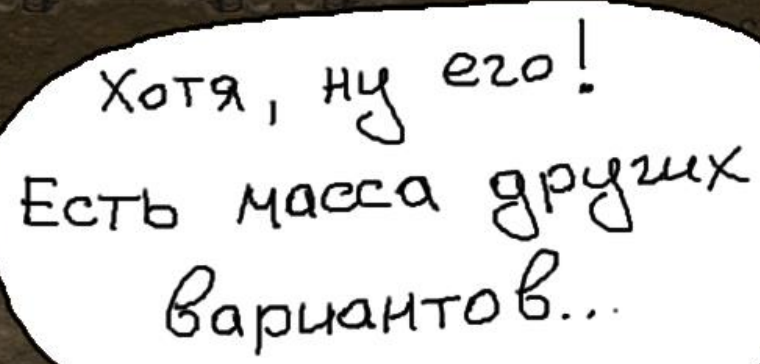 Хотя, ну его!
Есть масса других
вариантов...